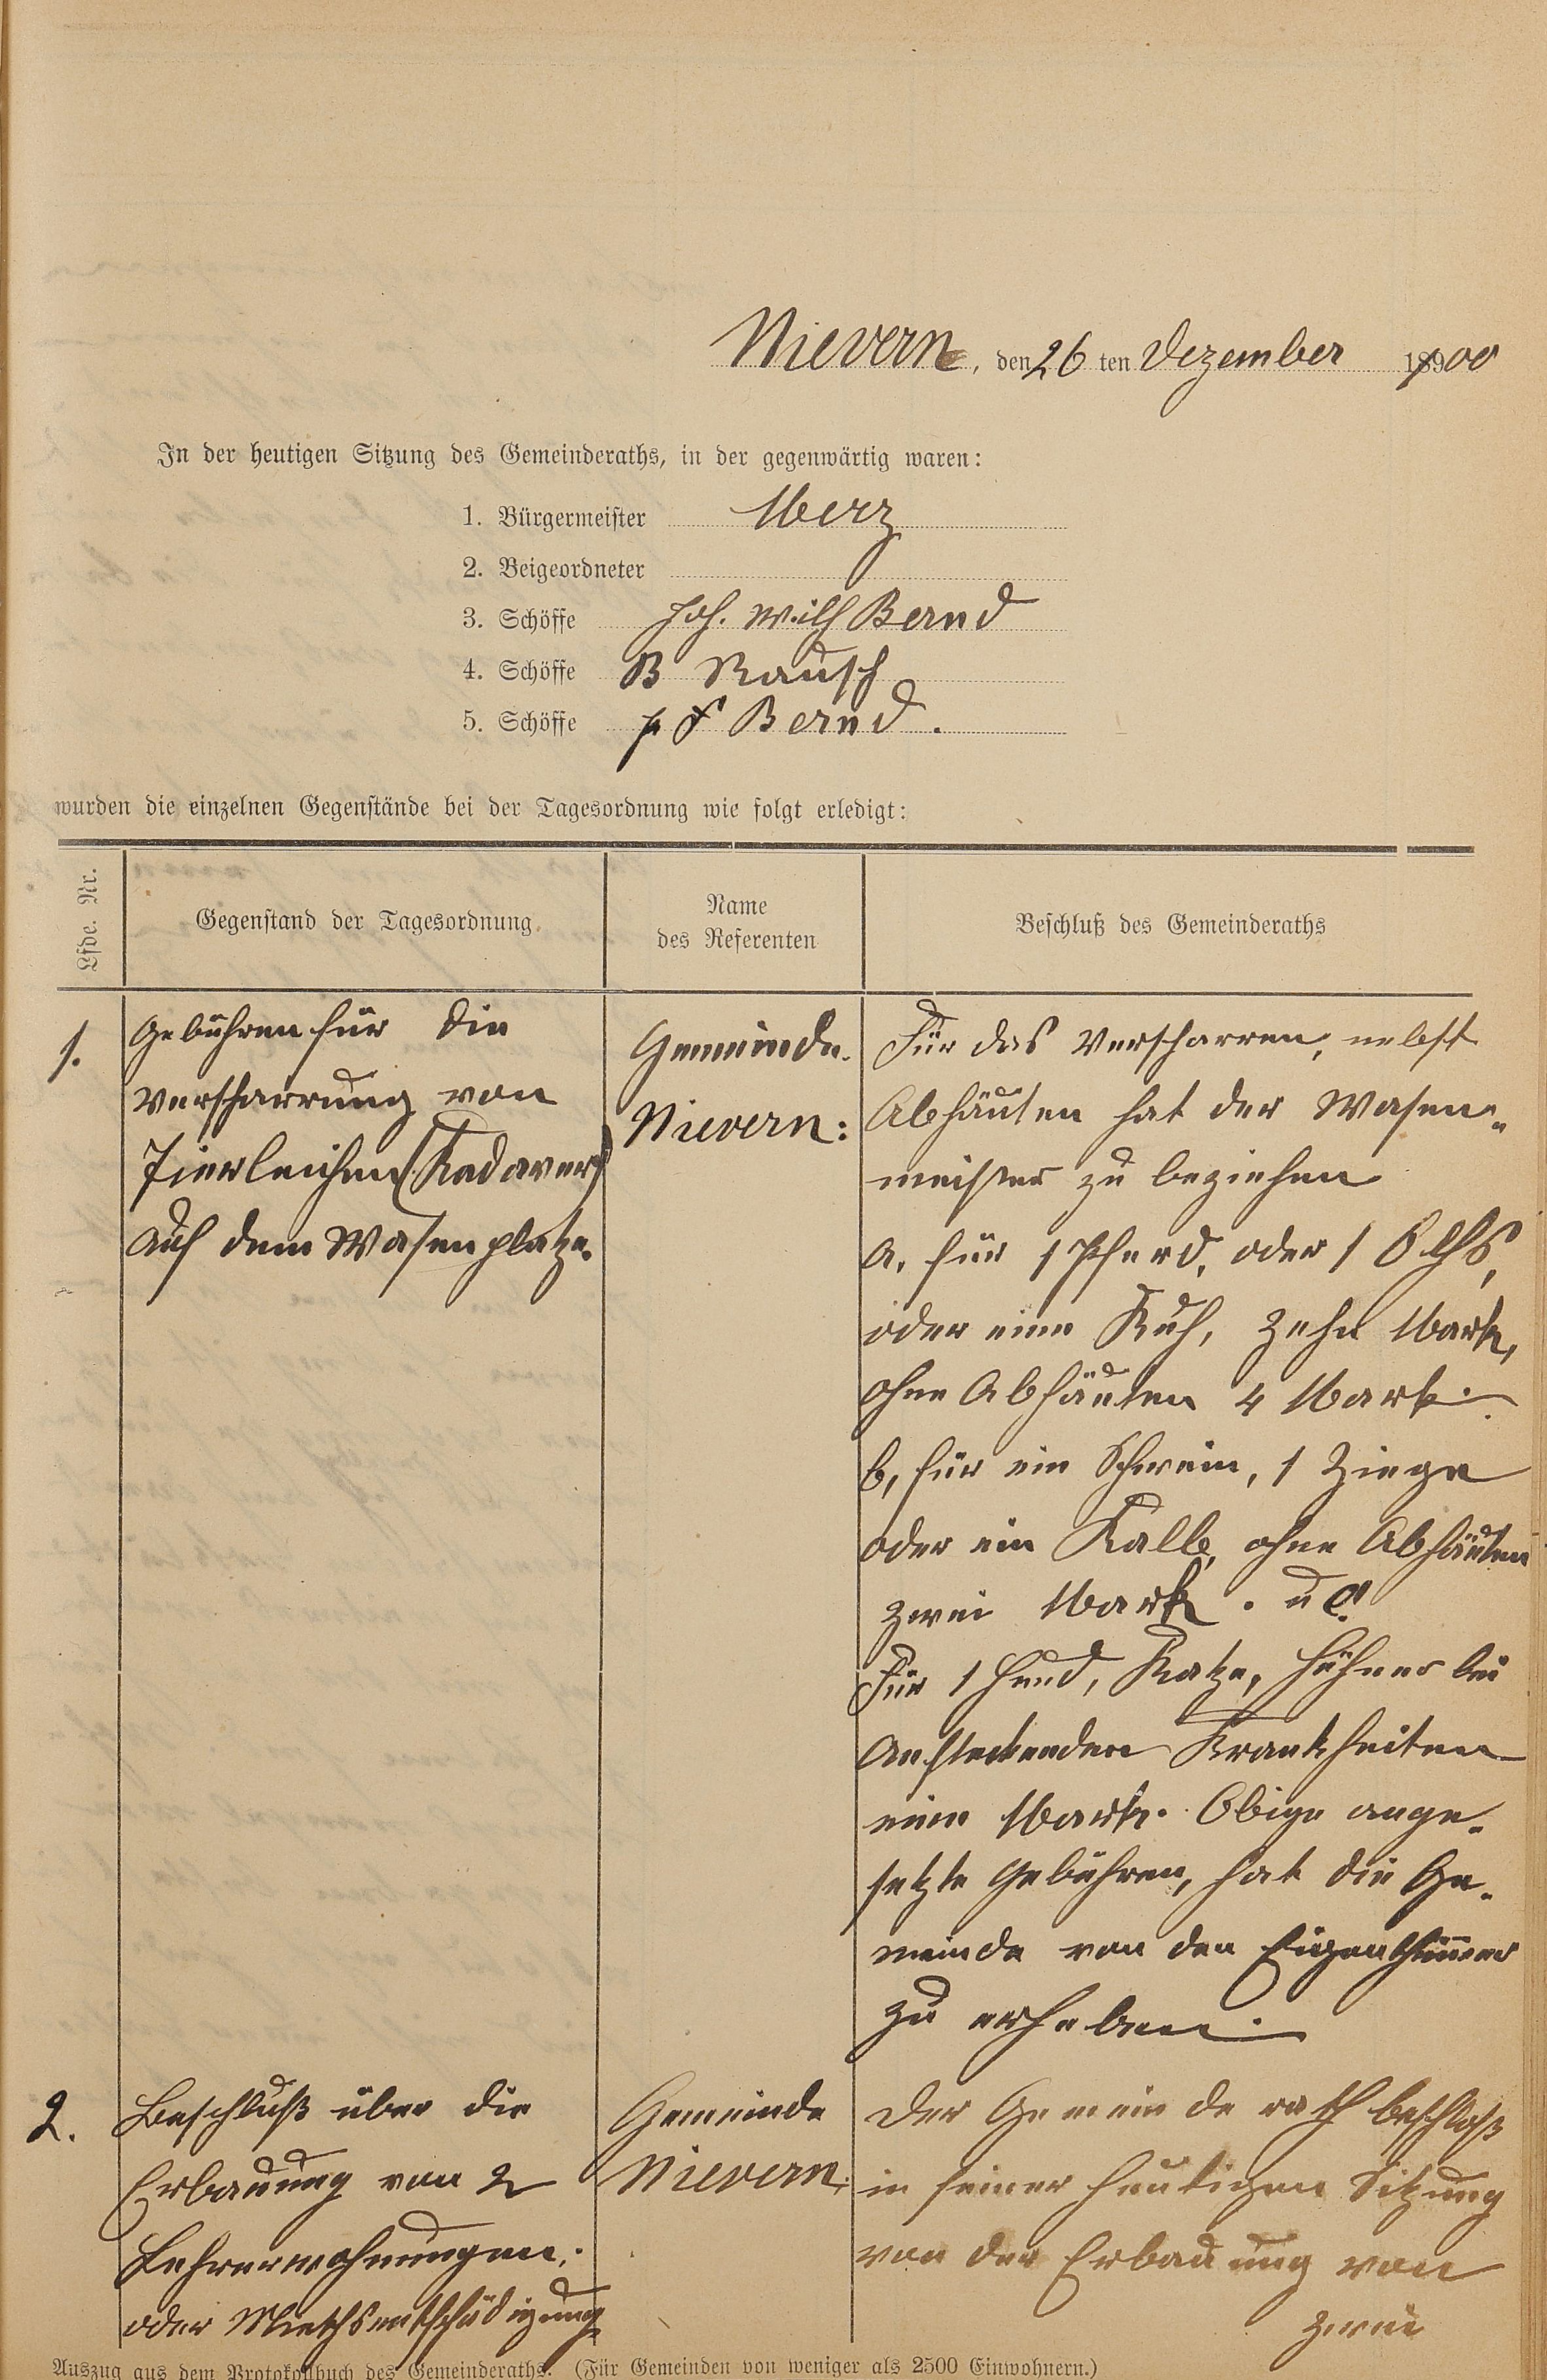 Nievern, den 26 ten Dezember 1900
In der heutigen Sitzung des Gemeinderaths, in der gegenwärtig waren:
1. Bürgermeister Merz
2. Beigeordneter
3. Schöffe Joh. Wilh Bernd
4. Schöffe B Rausch
5. Schöffe Bernd.
wurden die einzelnen Gegenstände bei der Tagesordnung wie folgt erledigt:
Lfde. Nr.
Gegenstand der Tagesordnung
Name
des Referenten
Beschluß des Gemeinderaths
1.
Gebühren für die
Verscharrung von
Tierleichen (Kadaver)
auf dem Wasenplatze.
Gemeinde.
Nievern:
Für das Verscharren, nebst
Abhäuten hat der Wasen-
meister zu beziehen
a, für 1 Pferd, oder 1 Ochs,
oder eine Kuh, zehn Mark,
ohne Abhäuten 4 Mark.
b, für ein Schwein, 1 Ziege
oder ein Kalb, ohne Abhäuten
zwei Mark. u c.
Für 1 Hund, Katze, Hühner bei
Ansteckenden Krankheiten
eine Mark. Obige ange-
setzte Gebühren, hat die Ge-
meinde von den Eigenthümer
zu erheben.
2.
Beschluß über die
Erbauung von 2
Lehrerwohnungen.
oder Miethsentschädigung
Gemeinde
Nievern.
Der Gemeinderath beschloß
in seiner heutigen Sitzung
von der Erbauung von
zwei
Auszug aus dem Protokollbuch des Gemeinderaths. (Für Gemeinden von weniger als 2500 Einwohnern.)